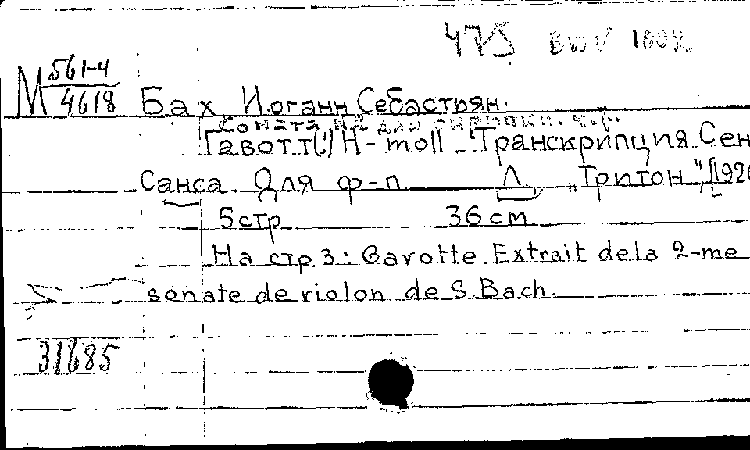 475 BWV 1002
М 561-4
4618
Бах Иоганн Себастьян.
Соната №2 для скрипки.
[Гавот. ] H-moll. Транскрипция Сен-
Санса. Для ф-п. Л., „Тритон", [192
5 стр. 36 см.
На стр. 3: Gavotte. Extrait de la 2-me
sonate de violon de S. Bach.
31685